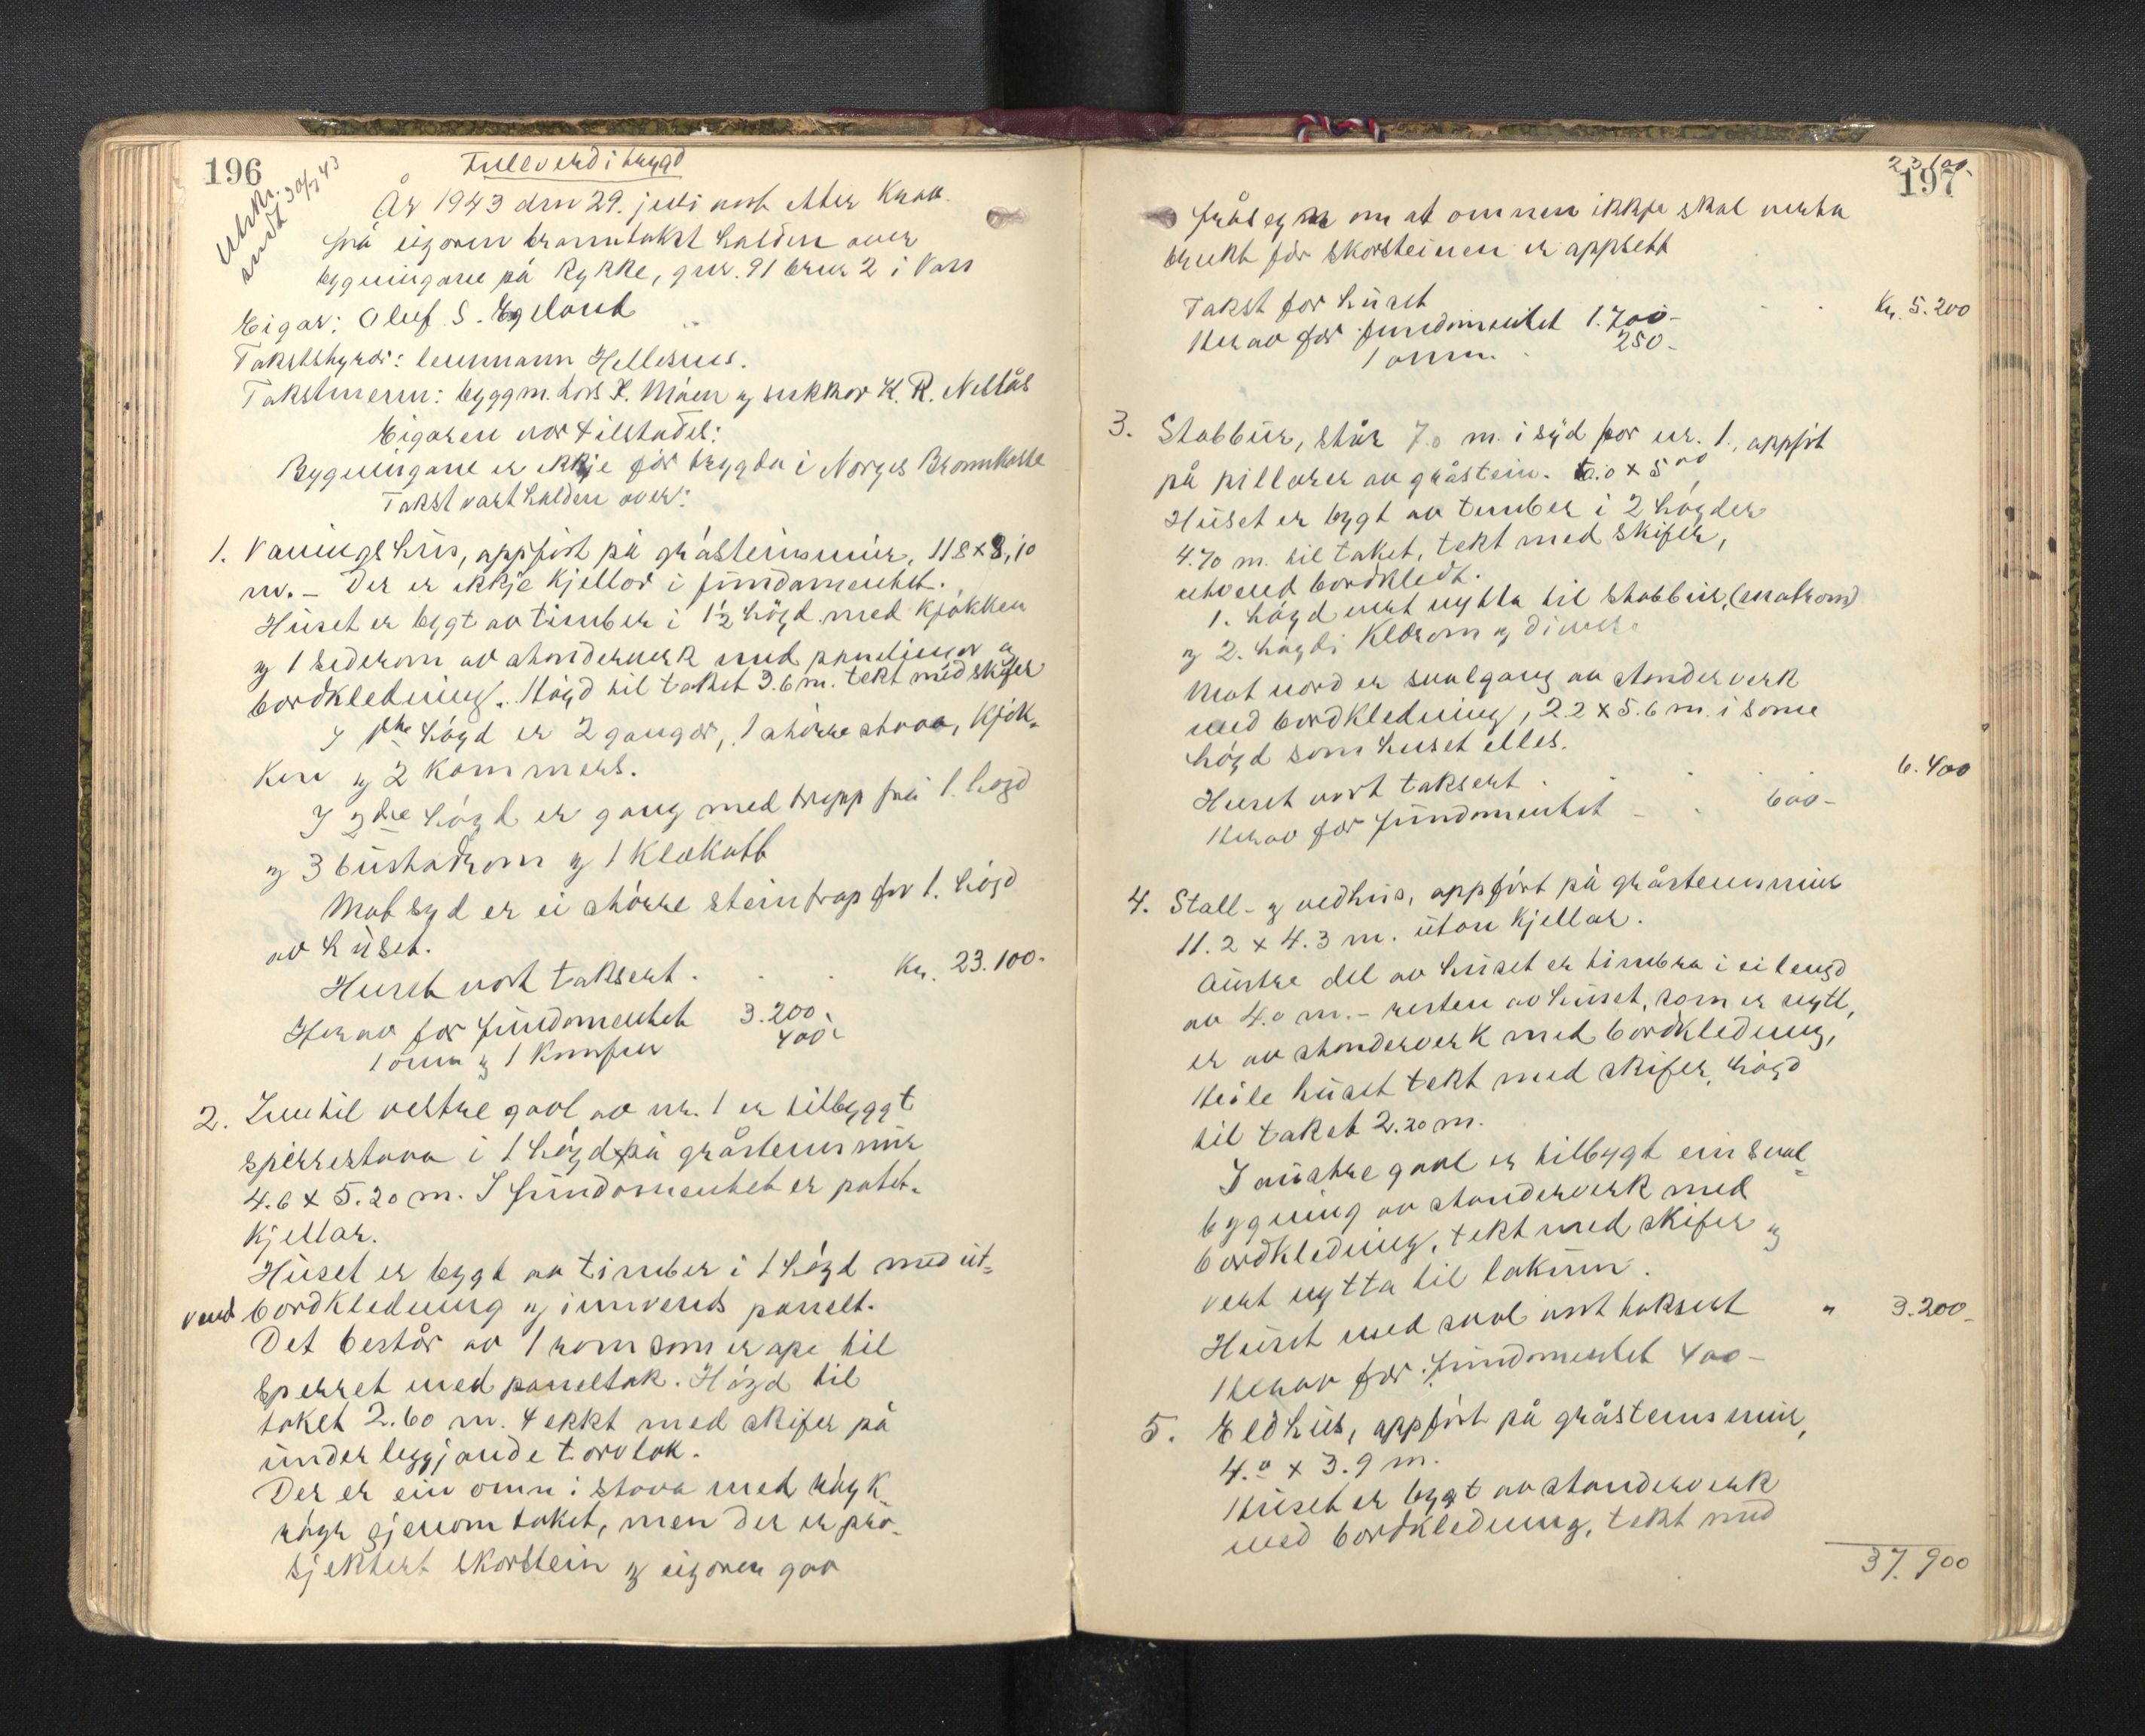 196
Fullverdi trygd
Utskr.
sendt 30/7 43
År 1943 den 29. juli vart etter Krav
frå eigaren branntakst halden over
bygningane på Rykke, gnr. 91 bnr 2 i Voss
Eigar: Oluf S. Egeland
Takststyrar: lensmann Hellesnes.
Takstmenn: byggm. Lars K. Måen og snikkar K. R. Nellås
Eigaren var tilstades:
Bygningane er ikkje før trygda i Norges Brannkasse
Takst vart halden over:
1. Vaningshus, oppført på gråsteinsmur, 11.8 x 8,10
m. – Der er ikkje kjellar i fundamentet.
Huset er bygt av timber i 1½ høgd med kjøkken
og 1 sederom av stenderverk med panelinger og
bordkledning. Høgd til taket 3.6 m. tekt med skifer
I 1ste høgd er 2 gangar, 1 større stova, Kjøk-
ken og 2 kammers.
I 2dre høgd er gang med trapp frå 1. høgd
og 3 bustadrom og 1 klekott
Mot syd er ei større steintrap for 1. høgd
av huset.
Huset vart taksert . . . Kr. 23.100.-
Herav for fundamentet 3.200.-
1 omn og 1 komfyr 400.-
2. Inntil vestre gavl av nr. 1 er tilbyggt
sperrestova i 1 høgd på gråsteinsmur
4.6 x 5.20 m. I fundamentet er potet-
kjellar.
Huset er bygt av timber i 1 høgd med ut-
vend bordkledning og innvends panelt.
Det består av 1 rom som er ope til
sperret med paneltak. Høgd til
taket 2.60 m. tekkt med skifer på
underleggjande torvtak.
Der er ein omn i stova med røyk-
røyr gjenom taket, men der er pro-
sjektert skorstein og eigaren gav
23.100.-
197
fråsegn om at omnen ikkje skal verta
brukt før skorsteinen er oppsett
Takst for huset . . Kr. 5.200
Herav for fundamentet 1.700.-
1 omn. . 250.-
3. Stabbur, står 7.0 m. i syd for nr. 1., oppført
på pillarer av gråstein. 6.0 x 5.00,
Huset er bygt av timber i 2 høgder
4.70 m. til taket, tekt med skifer,
utvend bordkledt.
1. høgd vert nytta til stabbur, (matrom)
og 2. høgdi klerom og diverse
Mot nord er svalgang av stenderverk
med bordkledning, 2.2 x 5.6 m. i same
høgd som huset elles.
Huset vart taksert . . . . 6.400
Herav for fundamentet – . 600.-
4. Stall- og vedhus, oppført på gråsteinsmur
11.2 x 4.3 m. utan kjellar.
Austre del av huset er timbra i ei lengd
av 4.0 m. – resten av huset, som er nytt,
er av stenderverk med bordkledning,
Heile huset tekt med skifer, høgd
til taket 2.20 m.
I austre gavl er tilbygt ein sval-
bygning av stenderverk med
bordkledning, tekt med skifer og
vert nytta til lokum.
Huset med sval vart taksert " 3.200.-
Herav for fundamentet 400.-
5. Eldhus, oppført på gråsteinsmur,
4.0 x 3.9 m.
Huset er bygt av stenderverk
med bordkledning, tekt med
37.900